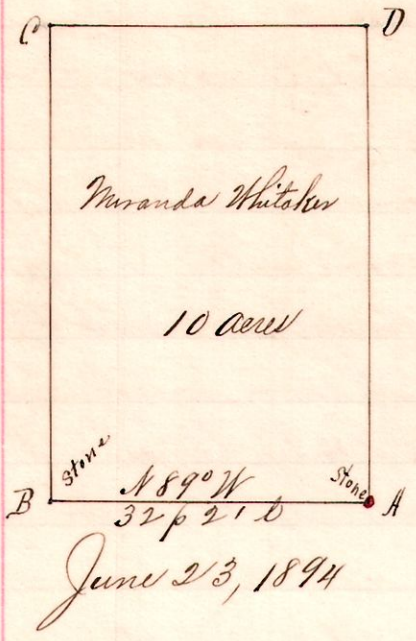 C D
Miranda Whitaker
10 Acres
Stone Stone
N 89° W
B A
32 p 21 l
June 23, 1894